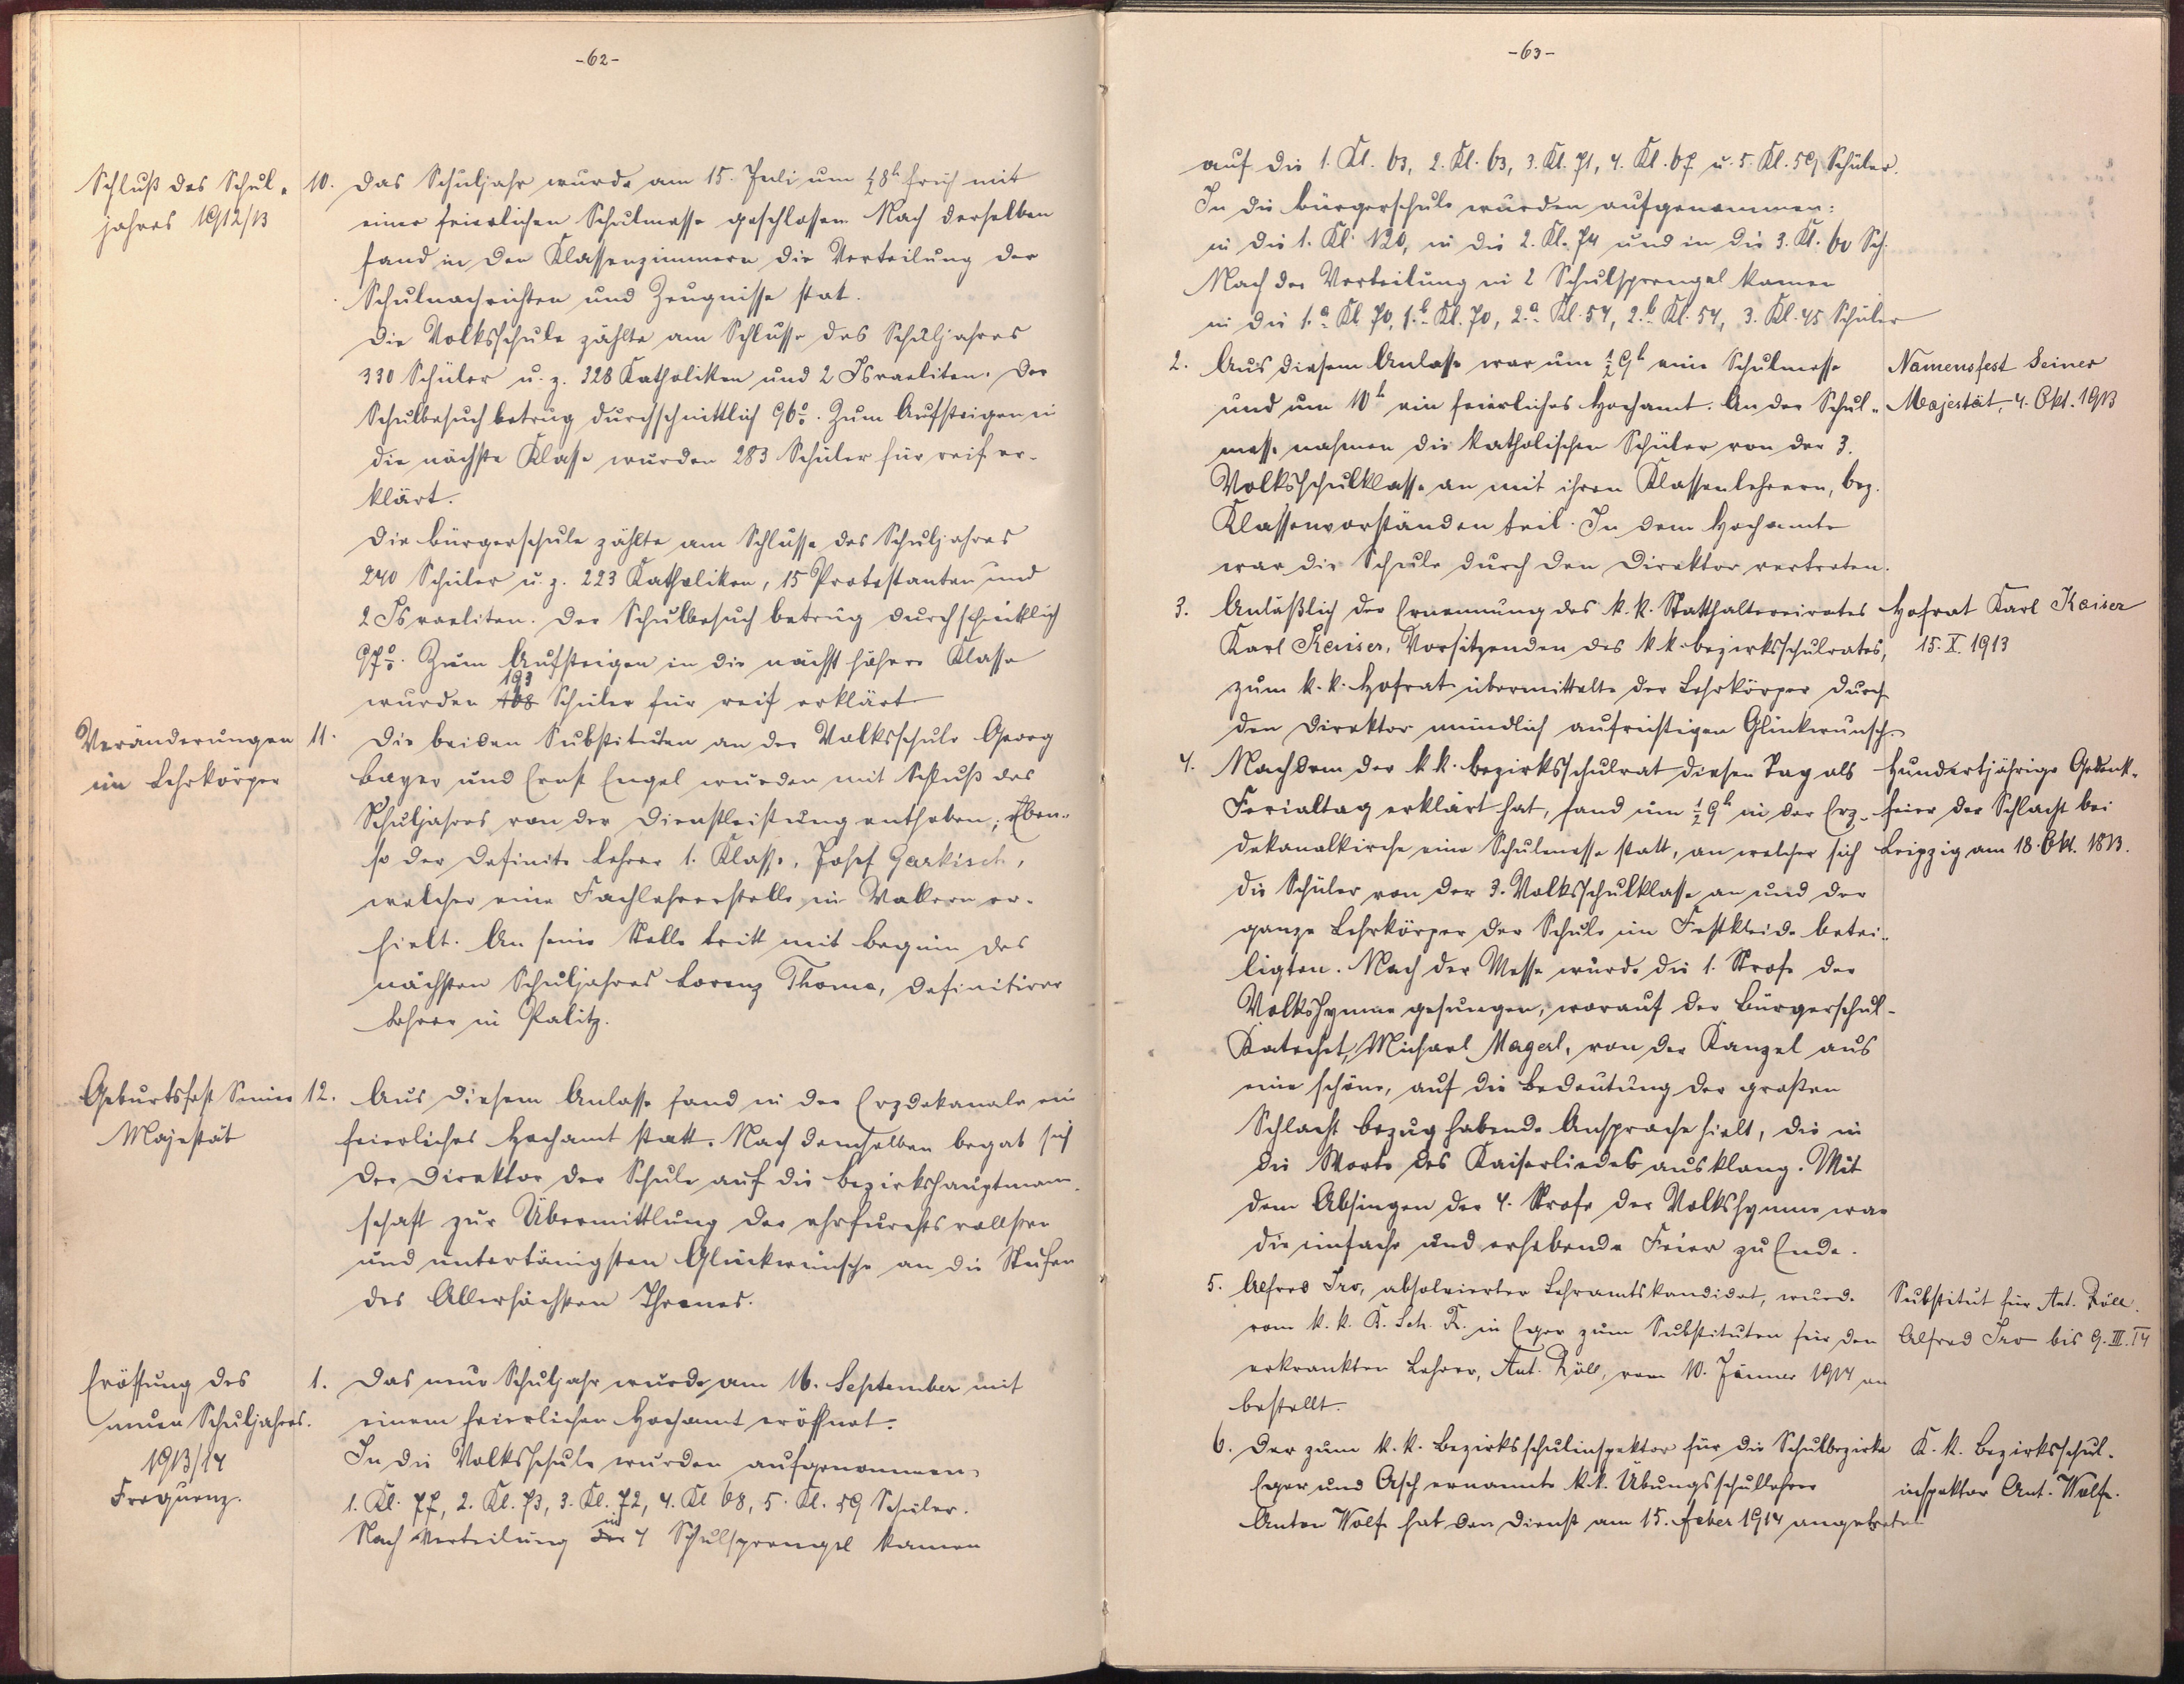 -62-
Schluß des Schul-
jahres 1912/13
10. Das Schuljahr wurde am 15. Juli um ½8h früh mit
einer feierlichen Schulmesse geschlossen. Nach derselben
fand in den Klassenzimmern die Verteilung der
Schulnachrichten und Zeugnisse stat.
Die Volksschule zählte am Schlusse des Schuljahres
330 Schüler u. z. 328 Katholiken und 2 Israeliten. Der
Schulbesuch betrug durchschnittlich 96%. Zum Aufsteigen in
die nächste Klasse wurden 283 Schüler für reif er-
klärt.
Die Bürgerschule zählte am Schlusse des Schuljahres
240 Schüler u. z. 223 Katholiken, 15 Protestanten und
2 Israeliten. Der Schulbesuch betrug durchschnittlich
97%. Zum Aufsteigen in die nächst höhere Klasse
193
wurden Schüler für reif erklärt.
Veränderungen
im Lehrkörper
11. Die beiden Substituten an der Volksschule Georg
Bayer und Ernst Engel wurden mit Schluß des
Schuljahres von der Dienstleistung enthoben; Eben-
so der definite Lehrer 1. Klasse, Josef Garkisch,
welcher eine Fachlehrerstelle in Wallern er-
hielt. An seine Stelle tritt mit Beginn des
nächsten Schuljahres Lorenz Thoma, definitiver
Lehrer in Palitz.
Geburtsfest Seiner
Majestät
12. Aus diesem Anlasse fand in der Erzdekanale ein
feierliches Hochamt statt. Nach demselben begab sich
der Direktor der Schule auf die Bezirkshauptmann-
schaft zur Übermittlung der ehrfurchtsvollsten
und untertänigsten Glückwünsche an die Stufen
des Allerhöchsten Thrones.
Eröffung des
neuen Schuljahres.
1913/14
Frequenz.
1. Das neue Schuljahr wurde am 16. September mit
einem feierlichen Hochamt eröffnet.
In die Volksschule wurden aufgenommen,
1. Kl. 77, 2. Kl. 73, 3. Kl. 72, 4. Kl 68, 5. Kl. 59 Schüler.
Nach Verteilung in 4 Schulsprengel kamen
-63-
auf die 1. Kl. 63, 2. Kl. 63, 3. Kl. 71, 4. Kl. 67 u. 5. Kl. 59 Schüler.
In die Bürgerschule wurden aufgenommen:
in die 1. Kl. 120, in die 2. Kl. 74 und in die 3. Kl. 60 Sch.
Nach der Verteilung in 2 Schulsprengel kamen
in die 1.a Kl. 70, 1.b Kl. 70, 2.a Kl. 54, 2.b Kl. 54, 3. Kl. 45 Schüler
2. Aus diesem Anlasse war um ½9h eine Schulmesse
und um 10h ein feierliches Hochamt. An der Schul-
messe nahmen die katholischen Schüler von der 3.
Volksschulklasse an mit ihren Klassenlehrern, bez.
Klassenvorständen teil. In dem Hochamte
war die Schule durch den Direktor vertreten.
Namensfest Seiner
Majestät, 4. Okt. 1913
3. Anläßlich der Ernennung des k. k. Statthaltereirates
Karl Keiser, Vorsitzenden des k. k. Bezirksschulrates,
zum k. k. Hofrat übermittelte der Lehrkörper durch
den Direktor mündlich aufrichtigen Glückwunsch.
Hofrat Karl Kaiser
15. X. 1913
4. Nachdem der k. k. Bezirksschulrat diesen Tag als
Ferialtag erklärt hat, fand um ½9h in der Erz-
dekanalkirche eine Schulmesse statt, an welcher sich
die Schüler von der 3. Volksschulklasse an und der
ganze Lehrkörper der Schule im Festkleide betei-
ligten. Nach der Messe wurde die 1. Strofe der
Volkshymne gesungen, worauf der Bürgerschul-
Katechet, Michael Magerl, von der Kanzel aus
eine schöne, auf die Bedeutung der großen
Schlacht bezug habende Ansprache hielt, die in
die Worte des Kaiserliedes ausklang. Mit
dem Absingen der 4. Strofe der Volkshymne war
die einfache und erhebende Feier zu Ende.
Hundertjährige Gedenk-
feier der Schlacht bei
Leipzig am 18. Okt. 1813.
5. Alfred Iro, absolvierter Lehramtskandidat, wurde
vom k. k. B. Sch. R. in Eger zum Substituten für den
erkrankten Lehrer, Ant. Köll, vom 10. Jänner 1914 an
bestellt.
Substitut für Ant. Köll.
Alfred Iro bis 9. III. 14
6. Der zum k. k. Bezirksschulinspektor für die Schulbezirke
Eger und Asch ernannte k. k. Übungsschullehrer
Anton Wolf hat den Dienst am 15. Feber 1914 angetreten
K. k. Bezirksschul-
inspektor Ant. Wolf.